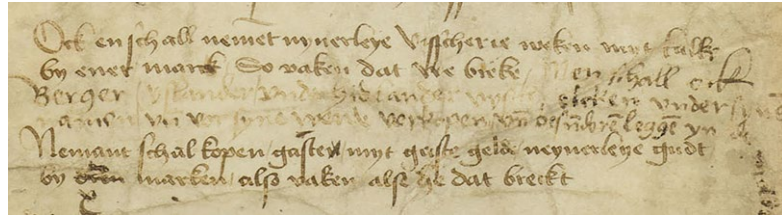 Ock en schall nemet nynerleye visscherie weken myt kalke
by ener marck So vaken dat he breke Men schall ock
Berger yslander vnde hidtlander vysch eliken vnder syne
namen vn vor syne werde verkopen vn des leggen yn
Nemant schal kopen gasten myt gaste gelde neynerleye gudt
by marken also vaken alse he dat breckt